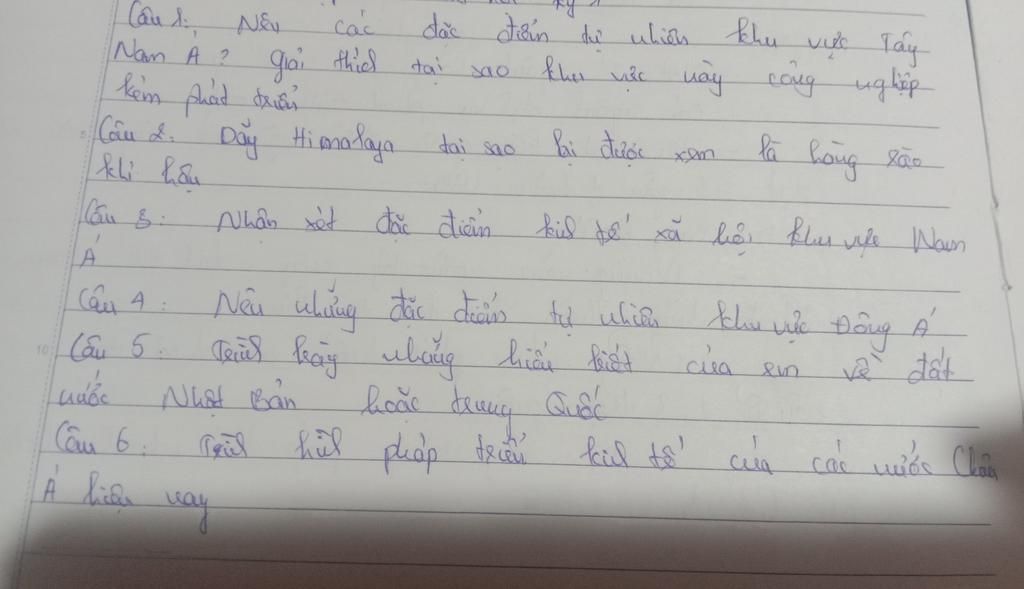 Câu 1: Nêu các đặc điểm tự nhiên khu vực Tây
Nam Á? giải thích tại sao khu vực này công nghiệp
kém phát triển
Câu 2: Dãy Himalaya tại sao lại được xem là hàng rào
khí hậu
Câu 3: Nhận xét đặc điểm kinh tế xã hội khu vực Nam
Á
Câu 4: Nêu những đặc điểm tự nhiên khu vực Đông Á
Câu 5: Trình bày những hiểu biết của em về đất
nước Nhật Bản hoặc trung Quốc
Câu 6: Tình hình pháp triển kinh tế của các nước Châu
Á hiện nay